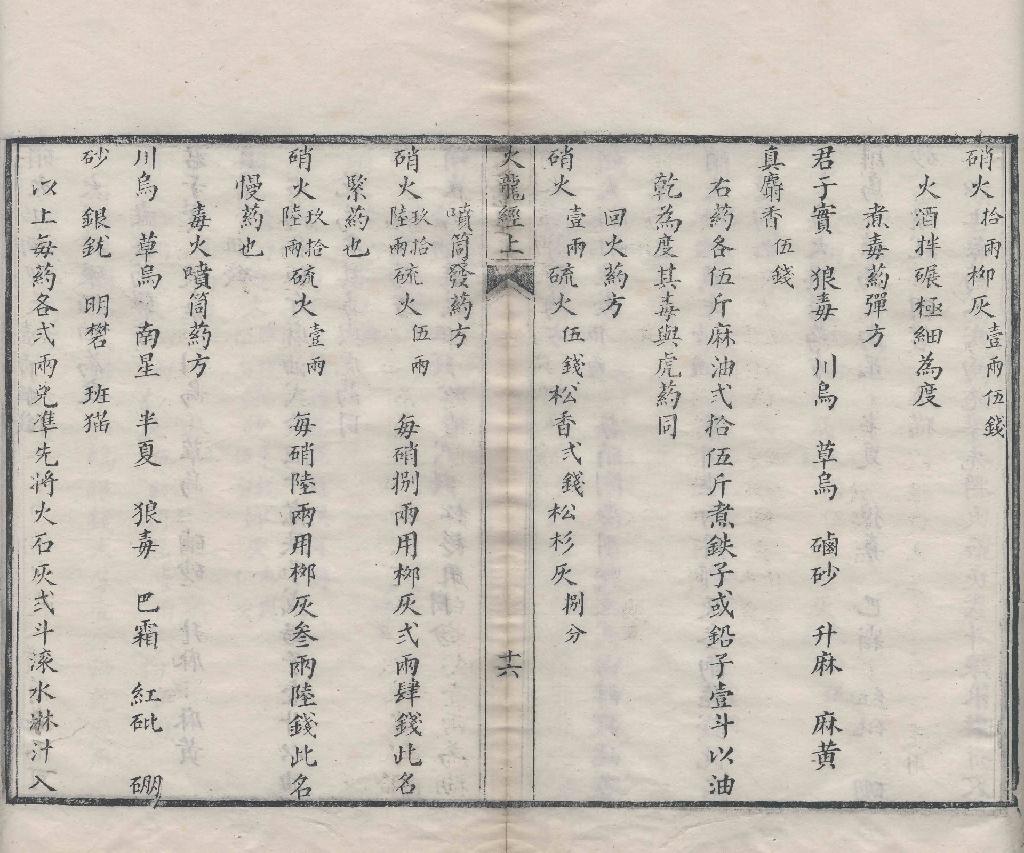 硝火拾兩柳灰壹兩伍錢
火酒拌碾極細為度
煮毒药彈方
君子實 狼毒 川烏 草烏 磠砂 升麻 麻黃
真麝香伍錢
右药各伍斤麻油弍拾伍斤煮鉄子或鉛子壹斗以油
乾為度其毒與虎药同
回火药方
硝火壹兩硫火伍錢松香弍錢松杉灰捌分
火龍經上
十六
噴筒發药方
硝火玖拾陸兩硫火伍兩 每硝捌兩用柳灰弍兩肆錢此名
緊药也
硝火玖拾陸兩硫火壹兩 每硝陸兩用柳灰叁兩陸錢此名
慢药也
毒火噴筒药方
川烏 草烏 南星 半夏 狼毒 巴霜 紅砒 硼
砂 銀銃 明礬 班猫
以上每药各弍兩兌準先將火石灰弍斗滚水淋汁入